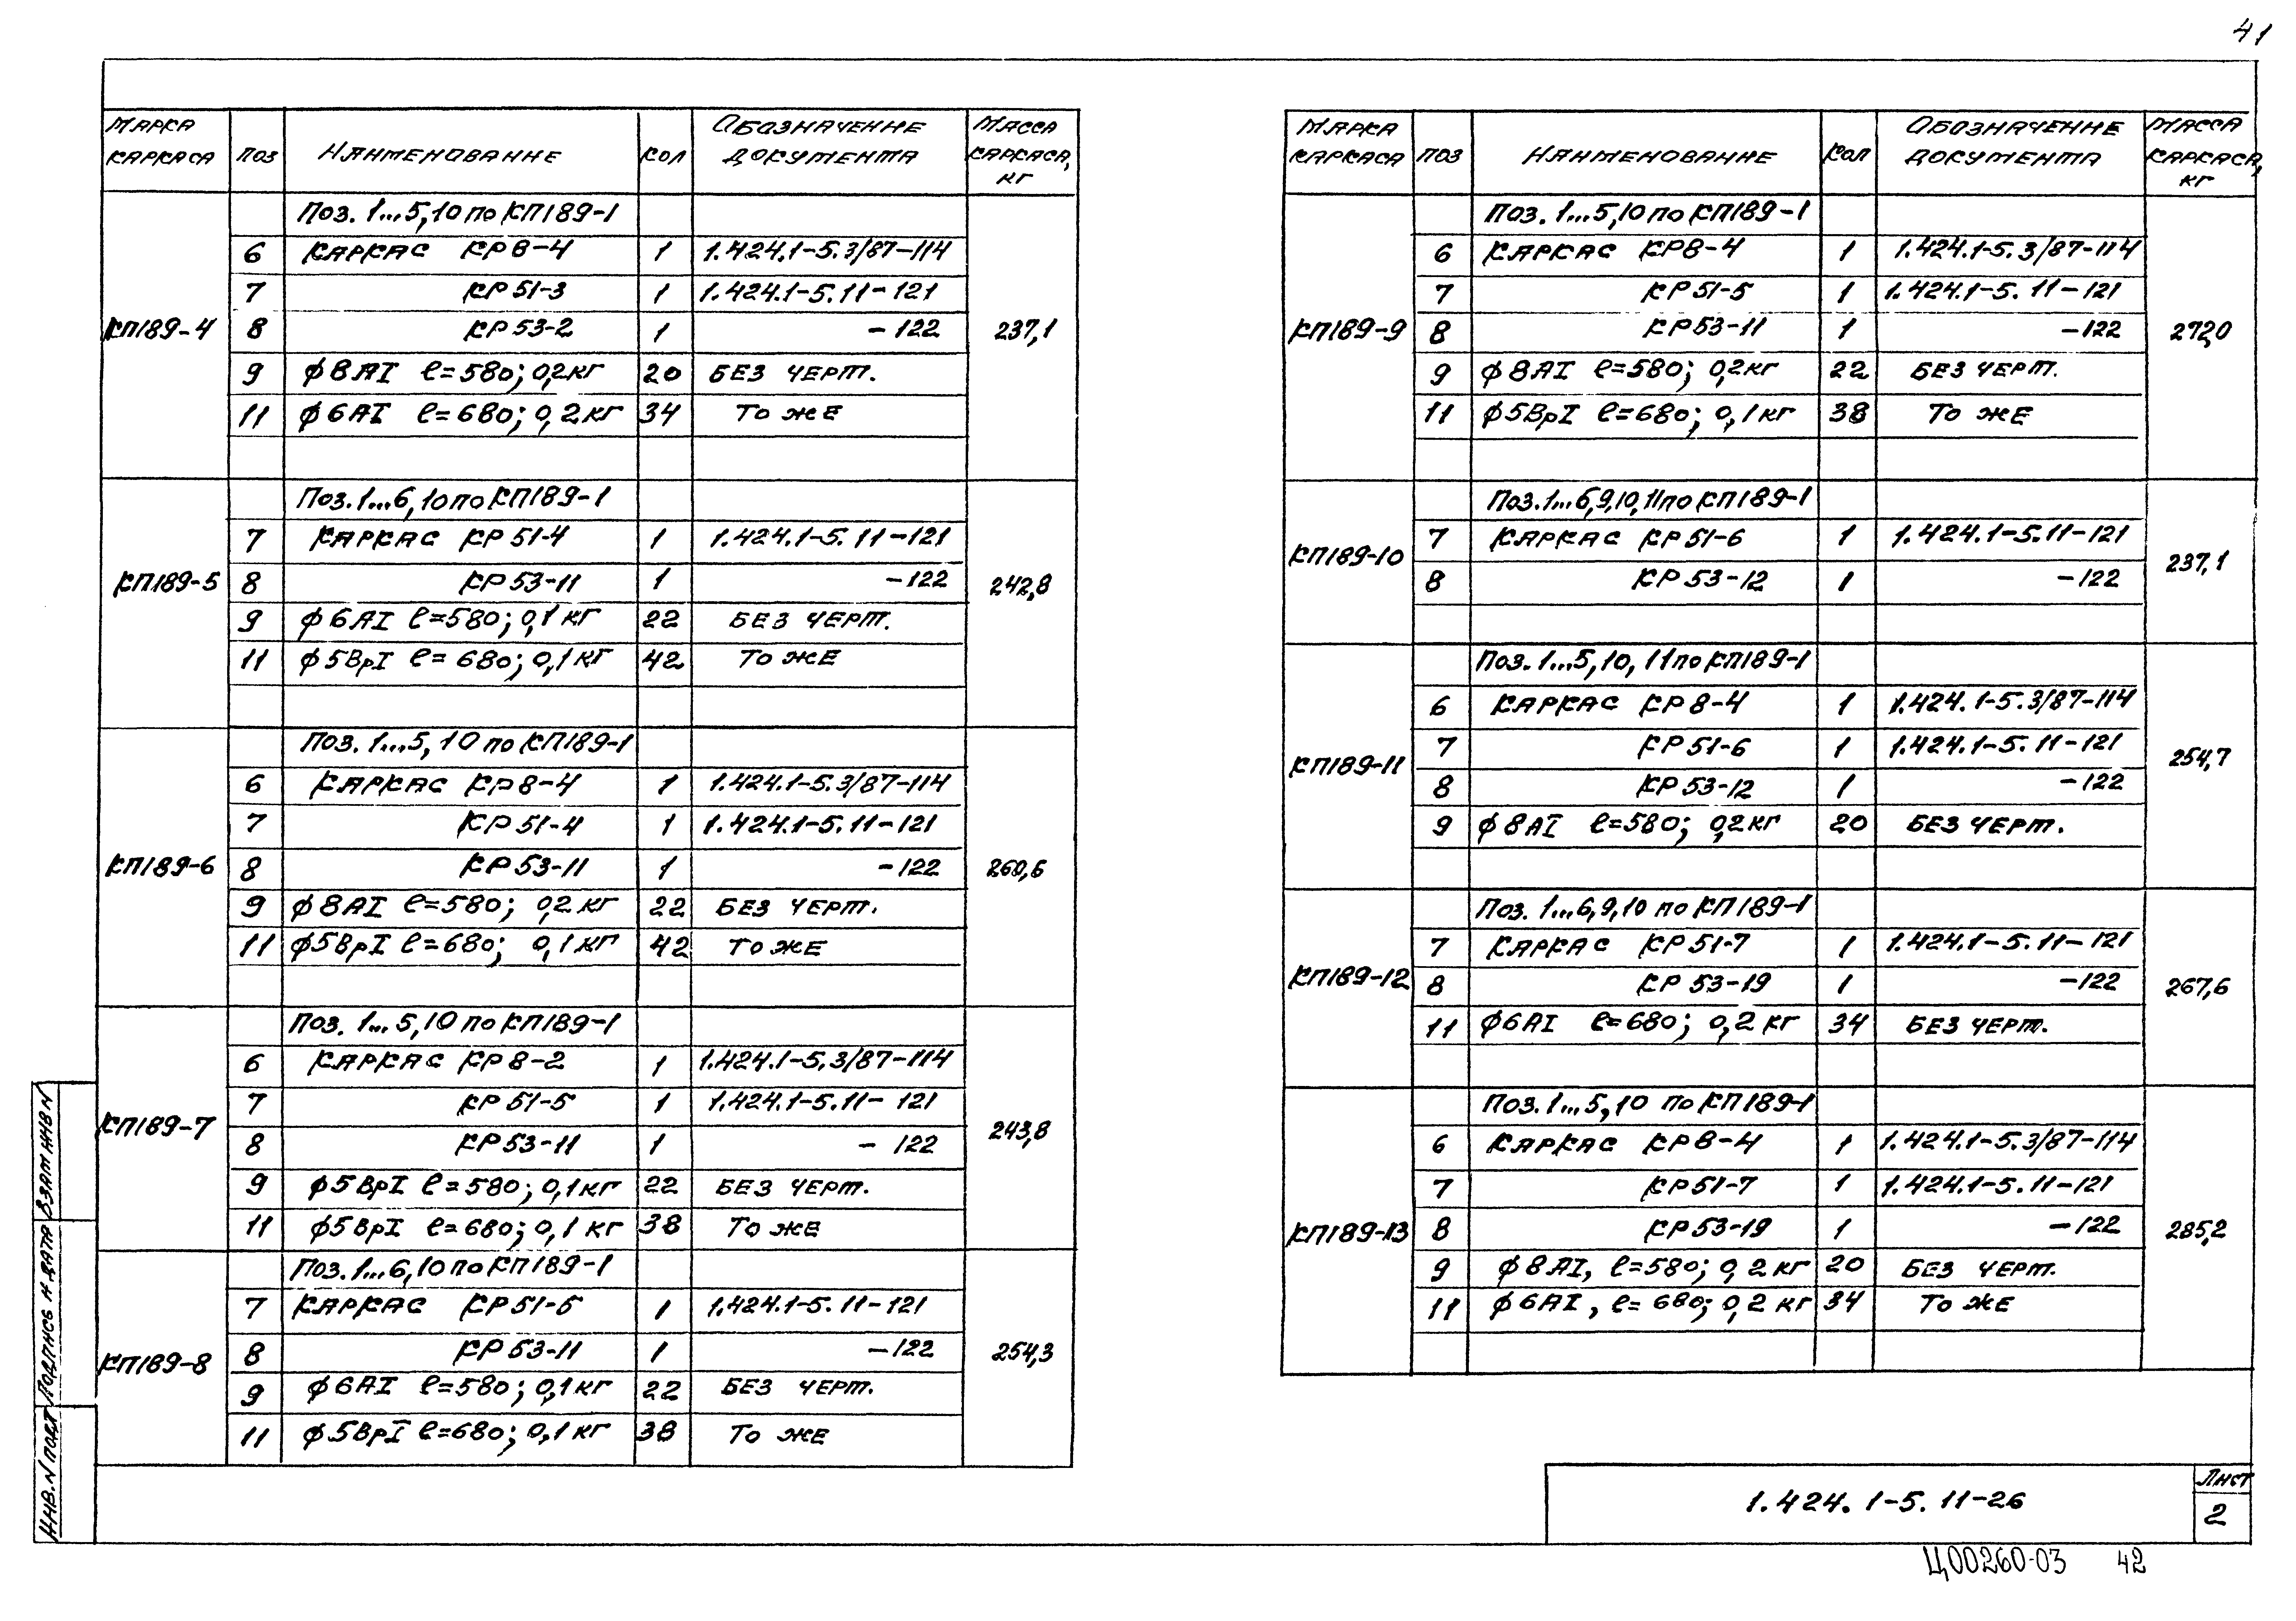 41
Марка каркаса | Поз | Наименование | Кол | Обозначение документа | Масса каркаса, кг
Поз. 1...5,10 по КП189-1
6 Каркас КР8-4 1 1.424.1-5.3/87-114
7 КР51-3 1 1.424.1-5.11-121
КП189-4 8 КР53-2 1 -122 237,1
9 ϕ8АI ℓ=580; 0,2кг 20 Без черт.
11 ϕ6АI ℓ=680; 0,2кг 34 То же
Поз. 1...6,10 по КП189-1
7 Каркас КР51-4 1 1.424.1-5.11-121
КП189-5 8 КР53-11 1 -122 242,8
9 ϕ6АI ℓ=580; 0,1кг 22 Без черт.
11 ϕ5ВрI ℓ=680; 0,1кг 42 То же
Поз. 1...5,10 по КП189-1
6 Каркас КР8-4 1 1.424.1-5.3/87-114
7 КР51-4 1 1.424.1-5.11-121
КП189-6 8 КР53-11 1 -122 260,6
9 ϕ8АI ℓ=580; 0,2кг 22 Без черт.
11 ϕ5ВрI ℓ=680; 0,1кг 42 То же
Поз. 1...5,10 по КП189-1
6 Каркас КР8-2 1 1.424.1-5.3/87-114
7 КР51-5 1 1.424.1-5.11-121
КП189-7 8 КР53-11 1 -122 243,8
9 ϕ5ВрI ℓ=580; 0,1кг 22 Без черт.
11 ϕ5ВрI ℓ=680; 0,1кг 38 То же
Поз. 1...6,10 по КП189-1
7 Каркас КР51-5 1 1.424.1-5.11-121
КП189-8 8 КР53-11 1 -122 254,3
9 ϕ6АI ℓ=580; 0,1кг 22 Без черт.
11 ϕ5ВрI ℓ=680; 0,1кг 38 То же
Марка каркаса | Поз | Наименование | Кол | Обозначение документа | Масса каркаса, кг
Поз. 1...5,10 по КП189-1
6 Каркас КР8-4 1 1.424.1-5.3/87-114
7 КР51-5 1 1.424.1-5.11-121
КП189-9 8 КР53-11 1 -122 272,0
9 ϕ8АI ℓ=580; 0,2кг 22 Без черт.
11 ϕ5ВрI ℓ=680; 0,1кг 38 То же
Поз. 1...6,9,10,11 по КП189-1
КП189-10 7 Каркас КР51-6 1 1.424.1-5.11-121 237,1
8 КР53-12 1 -122
Поз. 1...5,10,11 по КП189-1
6 Каркас КР8-4 1 1.424.1-5.3/87-114
7 КР51-6 1 1.424.1-5.11-121
КП189-11 8 КР53-12 1 -122 254,7
9 ϕ8АI ℓ=580; 0,2кг 20 Без черт.
Поз. 1...6,9,10 по КП189-1
7 Каркас КР51-7 1 1.424.1-5.11-121
КП189-12 8 КР53-19 1 -122 267,6
11 ϕ6АI ℓ=680; 0,2кг 34 Без черт.
Поз. 1...5,10 по КП189-1
6 Каркас КР8-4 1 1.424.1-5.3/87-114
7 КР51-7 1 1.424.1-5.11-121
КП189-13 8 КР53-19 1 -122 285,2
9 ϕ8АI, ℓ=580; 0,2кг 20 Без черт.
11 ϕ6АI, ℓ=680; 0,2кг 34 То же
Инв.N подл Подпись и дата Взам инв N
1.424.1-5.11-26
Лист
2
Ц00260-03 42